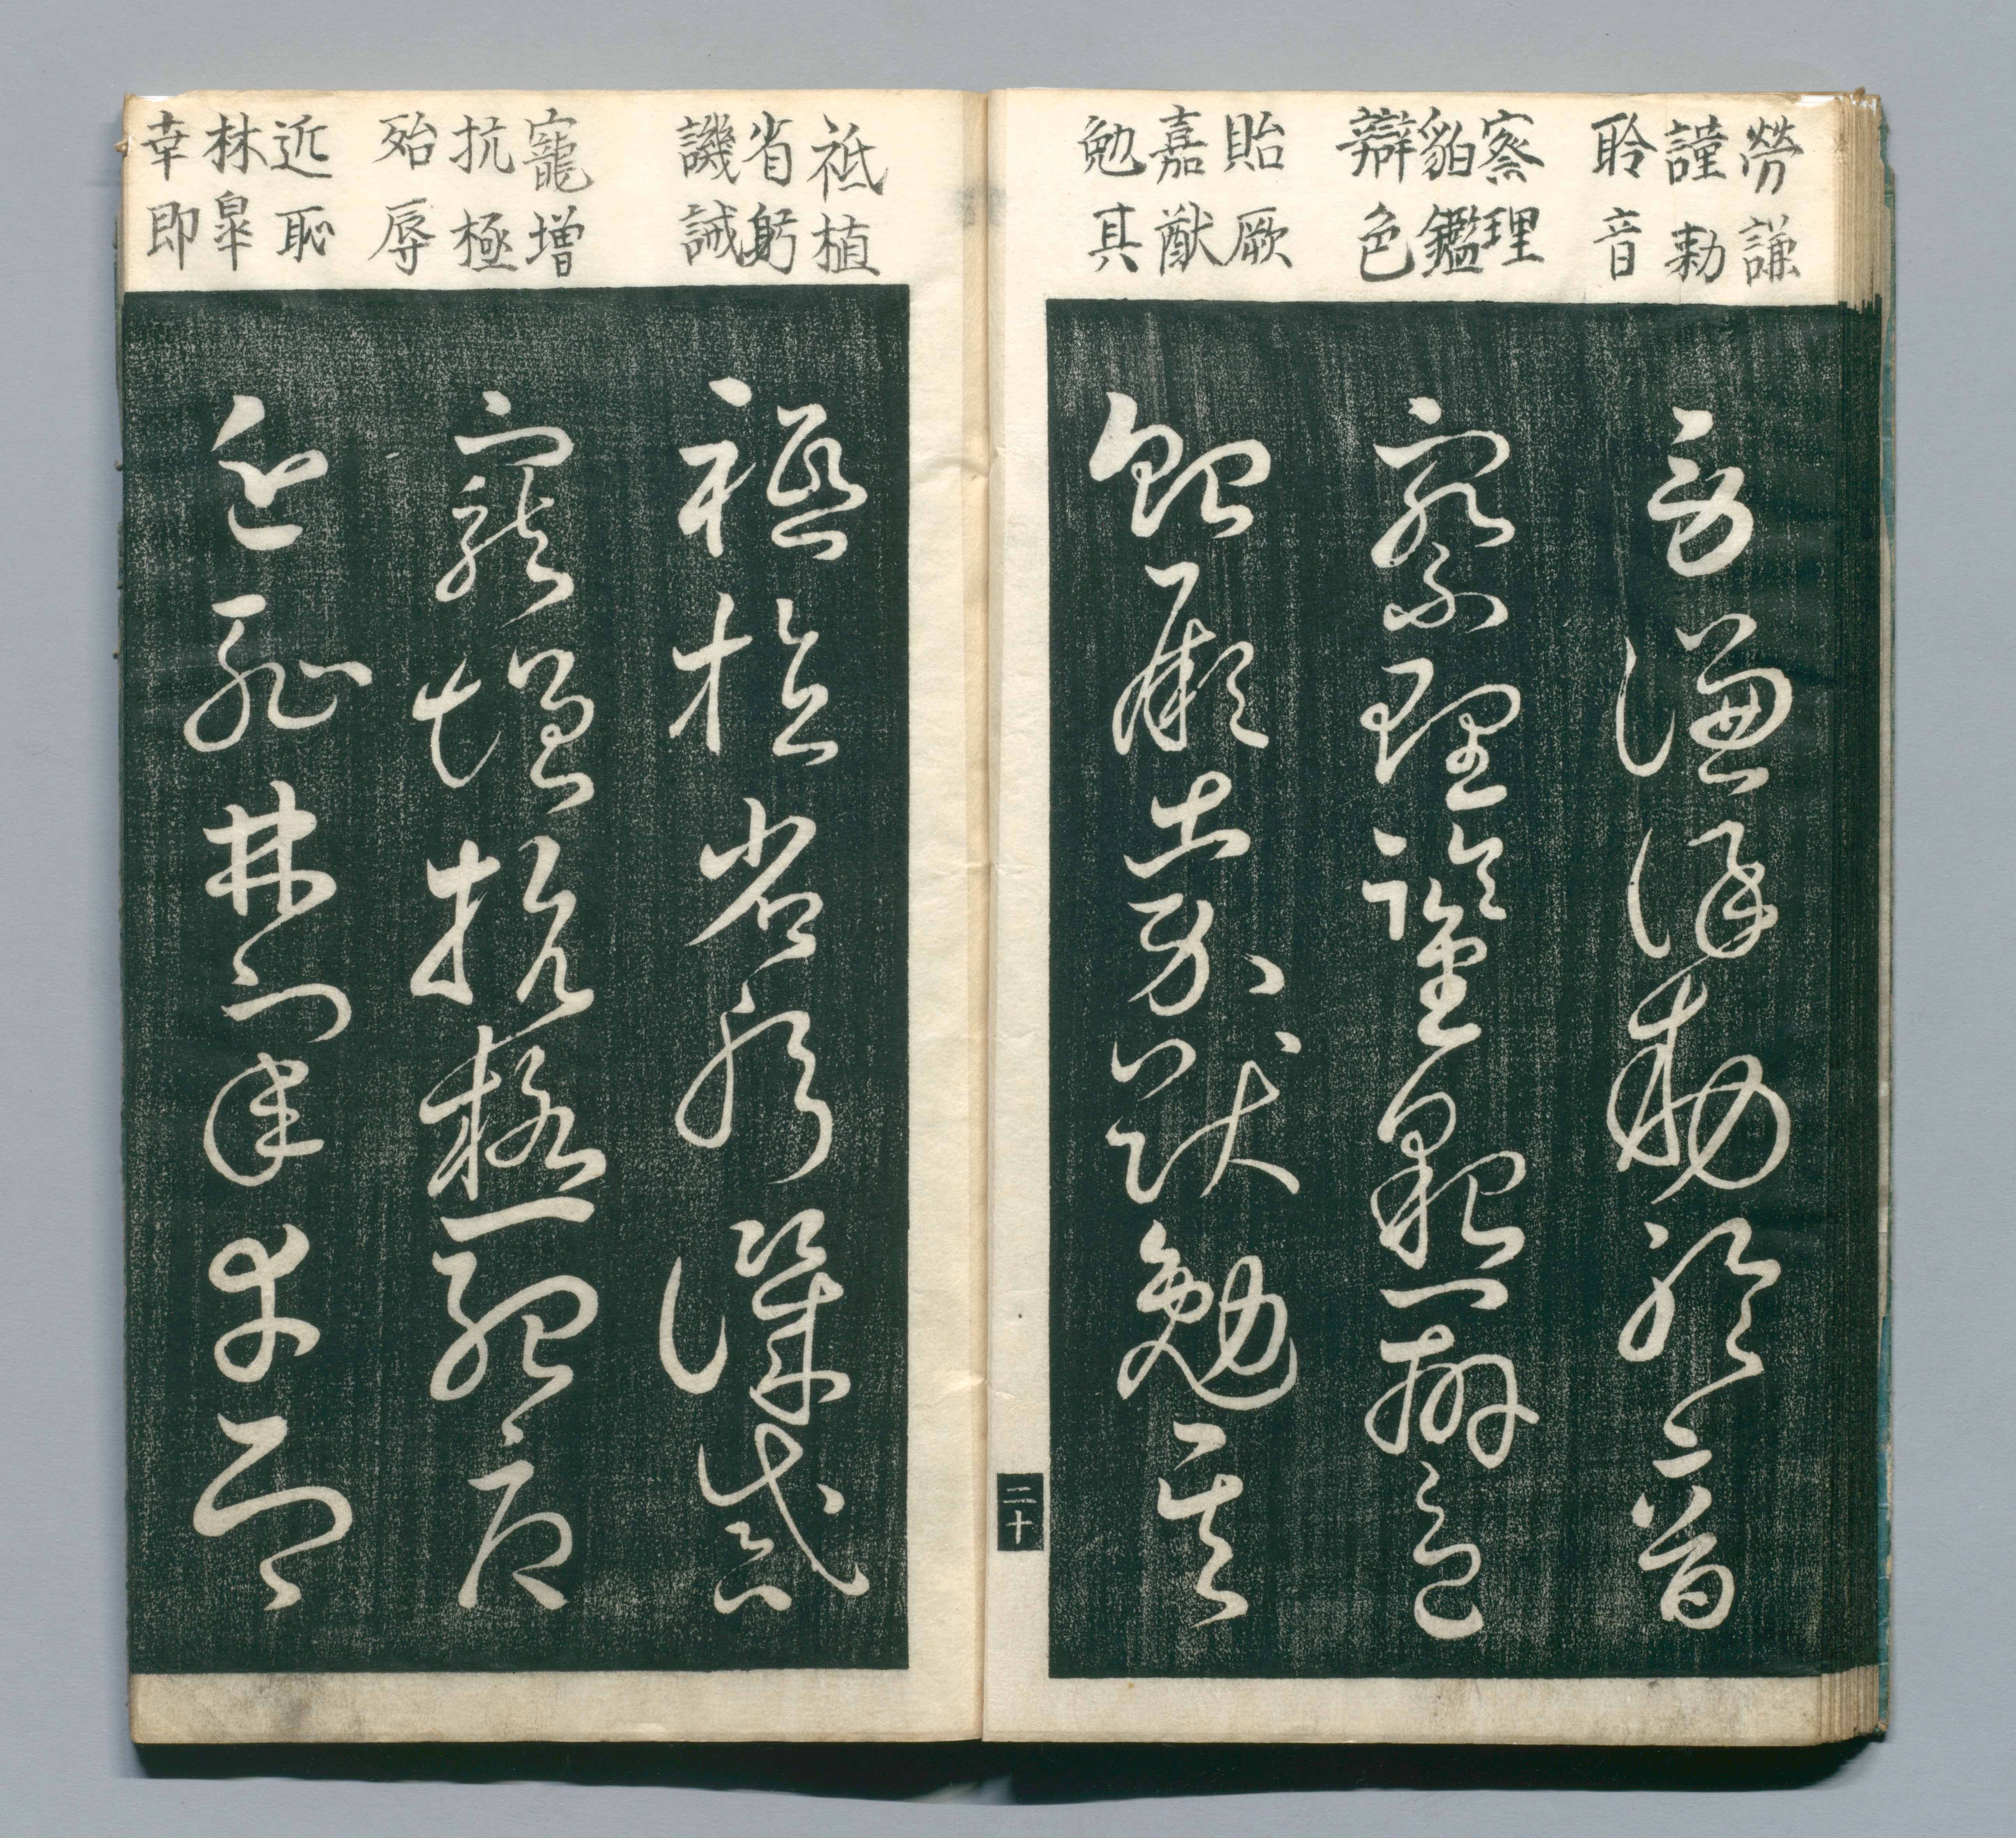 勞謙
謹勅
聆音
察理
貌鑑
辯色
貽厥
嘉猷
勉其
勞謙謹勅聆音
察理鑑貌辯色
貽厥嘉猷勉其
二十
祗植
省躬
譏誡
寵增
抗極
殆辱
近恥
林皐
幸即
祗植省躬譏誡
寵增抗極殆辱
近恥林皐幸即